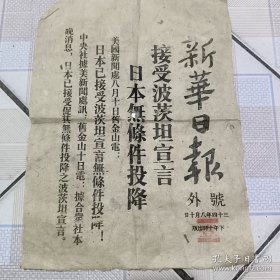 新華日報
號外
三十四年八月十日
下午十時出版
接受波茨坦宣言
日本無條件投降
美國新聞處八月十日舊金山電：
日本已接受波茨坦宣言無條件投降！
中央社據美新聞處訊：舊金山十日電：據合眾社本
晚消息，日本已接受促其無條件投降之波茨坦宣言。
孔夫子旧书网